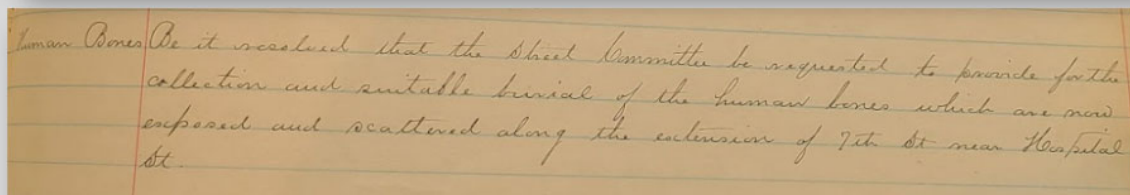 Human Bones Be it resolved that the Street Committee be requested to provide for the
collection and suitable burial of the human bones which are now
exposed and scattered along the extension of 7th St near Hospital
St.